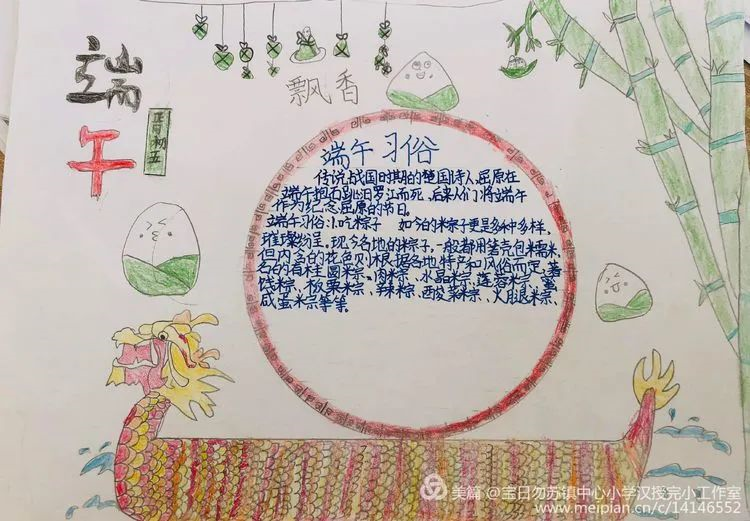 端
午
飘香
正月初五
端午习俗
传说战国时期的楚国诗人屈原在
端午抱石跳汨罗江而死,后来人们将端午
作为纪念屈原的节日。
端午习俗:1.吃粽子 如今的粽子更是多种多样,
璀璨物呈。现今各地的粽子,一般都用箬壳包糯米,
但内色的花色则根据各地特产和风俗而定,著
名的有桂圆粽、肉粽、水晶粽、莲蓉粽、蜜
饯粽、板栗粽、辣粽、酸菜粽、火腿粽、
咸蛋粽等等。
美篇 @宝日勿苏镇中心小学汉授完小工作室
www.meipian.cn/c/14146552